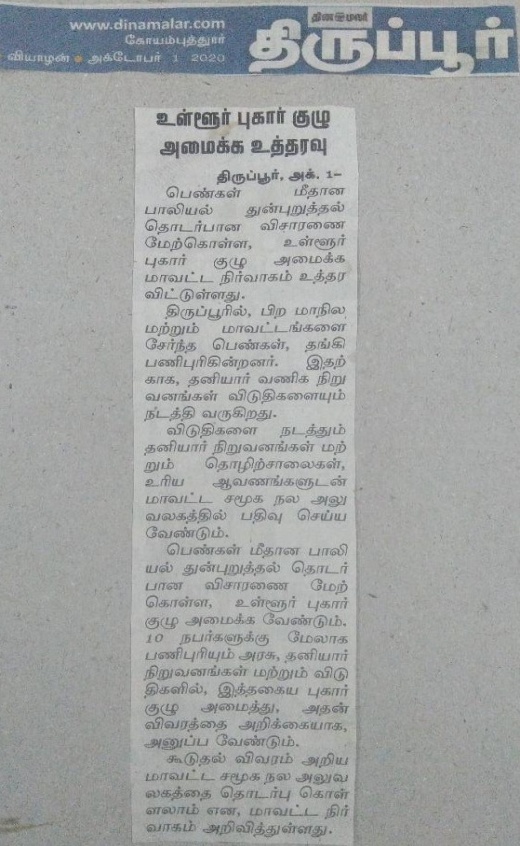 www.dinamalar.com
கோயம்புத்தூர்
வியாழன் அக்டோபர் 1 2020
தினமலர்
திருப்பூர்
உள்ளூர் புகார் குழு
அமைக்க உத்தரவு
திருப்பூர், அக். 1–
பெண்கள் மீதான
பாலியல் துன்புறுத்தல்
தொடர்பான விசாரணை
மேற்கொள்ள, உள்ளூர்
புகார் குழு அமைக்க
மாவட்ட நிர்வாகம் உத்தர
விட்டுள்ளது.
திருப்பூரில், பிற மாநில
மற்றும் மாவட்டங்களை
சேர்ந்த பெண்கள், தங்கி
பணிபுரிகின்றனர். இதற்
காக, தனியார் வணிக நிறு
வனங்கள் விடுதிகளையும்
நடத்தி வருகிறது.
விடுதிகளை நடத்தும்
தனியார் நிறுவனங்கள் மற்
றும் தொழிற்சாலைகள்,
உரிய ஆவணங்களுடன்
மாவட்ட சமூக நல அலு
வலகத்தில் பதிவு செய்ய
வேண்டும்.
பெண்கள் மீதான பாலி
யல் துன்புறுத்தல் தொடர்
பான விசாரணை மேற்
கொள்ள, உள்ளூர் புகார்
குழு அமைக்க வேண்டும்.
10 நபர்களுக்கு மேலாக
பணிபுரியும் அரசு, தனியார்
நிறுவனங்கள் மற்றும் விடு
திகளில், இத்தகைய புகார்
குழு அமைத்து, அதன்
விவரத்தை அறிக்கையாக,
அனுப்ப வேண்டும்.
கூடுதல் விவரம் அறிய
மாவட்ட சமூக நல அலுவ
லகத்தை தொடர்பு கொள்
ளலாம் என, மாவட்ட நிர்
வாகம் அறிவித்துள்ளது.